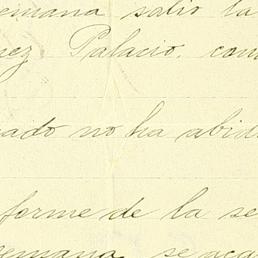 emana salio la
nez Palacio, com
ado no ha abid
forme de la se
semana se aca